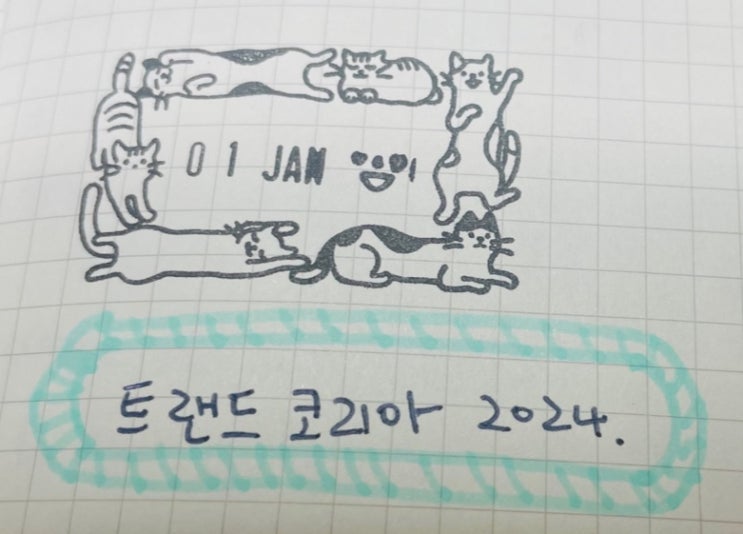 01 JAN
트랜드 코리아 2024.